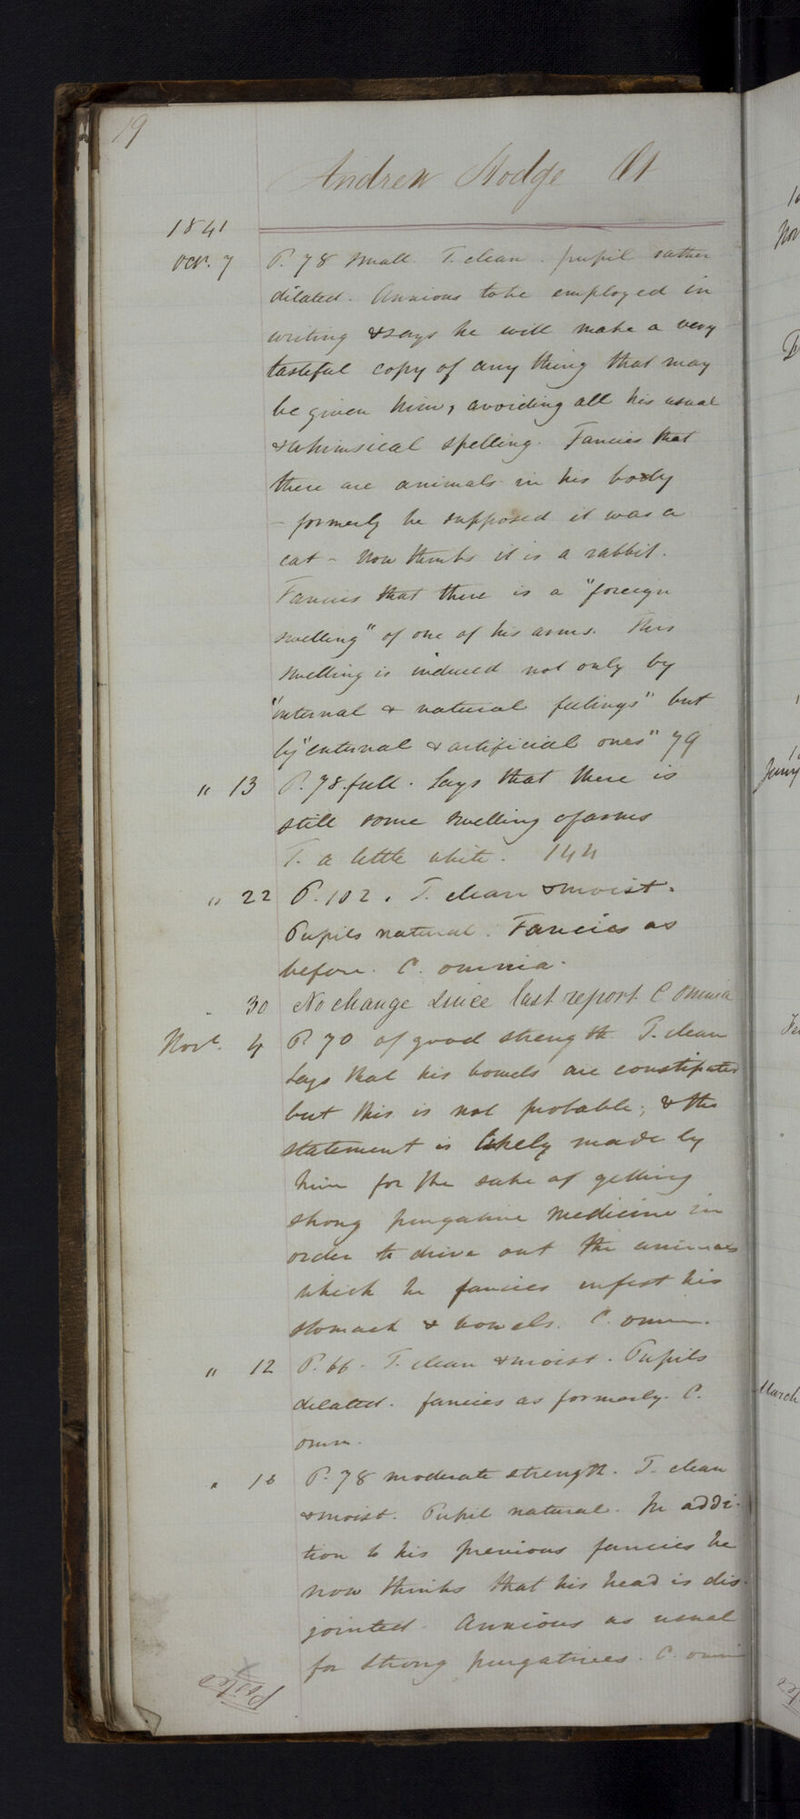 19
Andrew Hodge
1841
Octr. 7 P. 78 small. T. clean. pupil rather
dilated. Anxious to be employed in
writing & says he will make a very
tasteful copy of any thing that may
be given him, avoiding all his usual
& whimsical spelling. Fancies that
there are animals in his body
- formerly he supposed it was a
cat - now thinks it is a rabbit.
Fancies that there is a "foreign
swelling" of one of his arms. This
swelling is induced not only by
"internal & natural feelings" but
by "external & artificial ones" 79
" 13 P. 78. full. Says that there is
still some swelling of arms
T. a little white. 144
" 22 P. 102. T. clean & moist.
Pupils natural. Fancies as
before. C. omnia.
30 No change since last report C omnia
Novr. 4 P. 70 of good strength T. clean
Says that his bowels are constipated
but this is not probable; & the
statement is likely made by
him for the sake of getting
strong purgative medicine in
order to drive out the animals
which he fancies infest his
stomach & bowels. C. omn.
" 12 P. 66. T. clean & moist. Pupils
dilated. fancies as formerly. C.
omn.
" 18 P. 78 moderate strength. T. clean
& moist. Pupil natural. In addi-
tion to his previous fancies he
now thinks that his head is dis-
jointed. Anxious as usual
for strong purgatives. C. omn
Posted
Nov
March